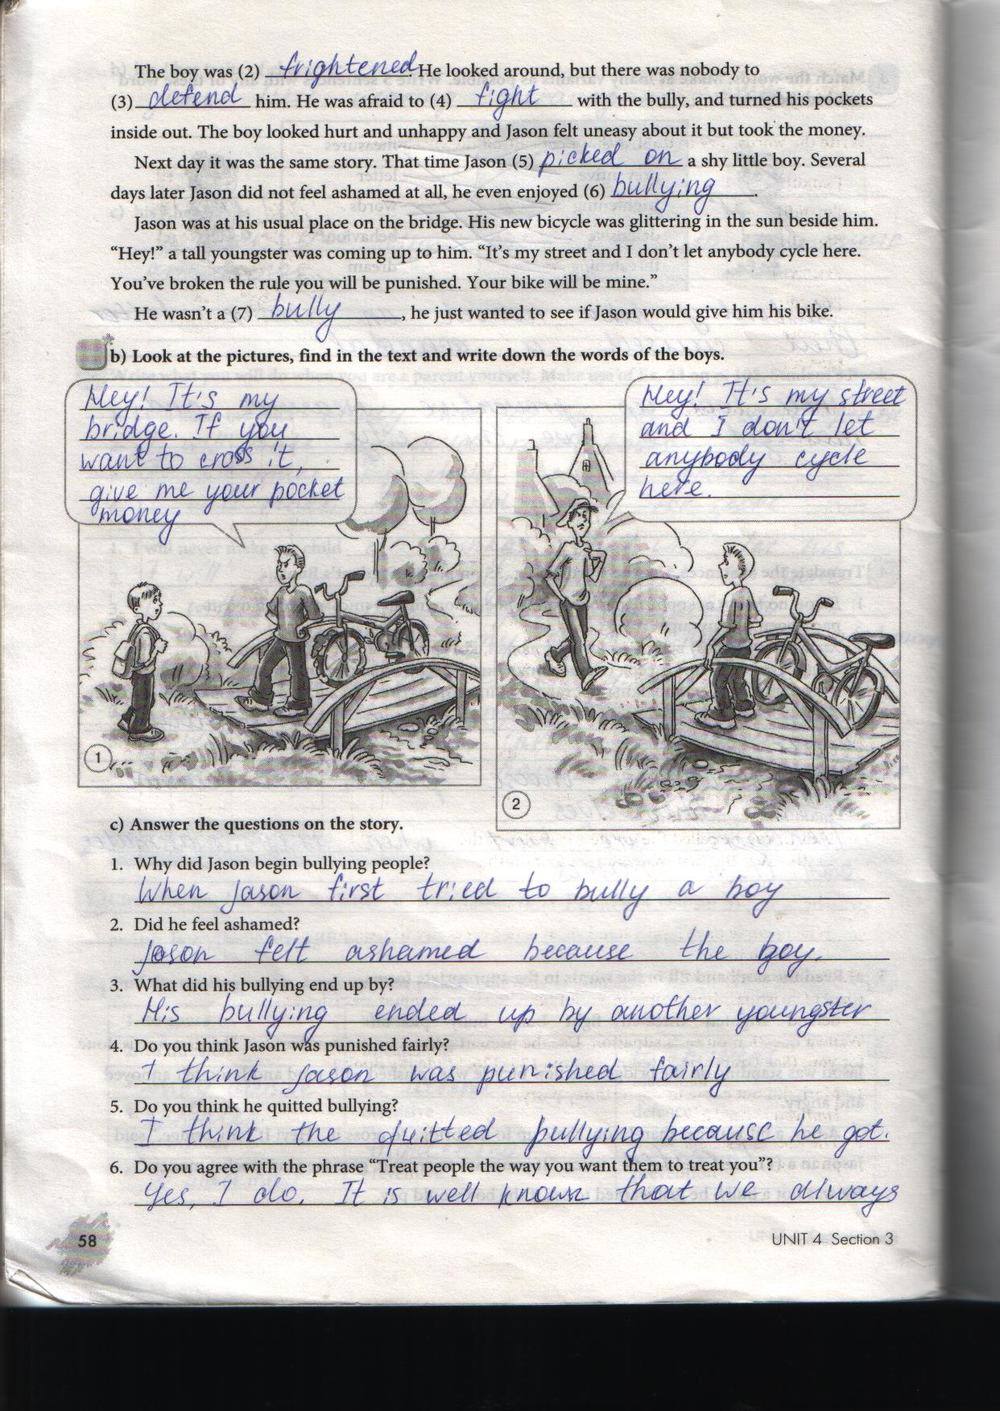 The boy was (2) frightened. He looked around, but there was nobody to
(3) defend him. He was afraid to (4) fight with the bully, and turned his pockets
inside out. The boy looked hurt and unhappy and Jason felt uneasy about it but took the money.
Next day it was the same story. That time Jason (5) picked on a shy little boy. Several
days later Jason did not feel ashamed at all, he even enjoyed (6) bullying.
Jason was at his usual place on the bridge. His new bicycle was glittering in the sun beside him.
“Hey!” a tall youngster was coming up to him. “It's my street and I don't let anybody cycle here.
You've broken the rule you will be punished. Your bike will be mine.”
He wasn't a (7) bully, he just wanted to see if Jason would give him his bike.
b) Look at the pictures, find in the text and write down the words of the boys.
Hey! It's my
bridge. If you
want to cross it,
give me your pocket
money
Hey! It's my street
and I don't let
anybody cycle
here.
1
2
c) Answer the questions on the story.
1. Why did Jason begin bullying people?
When Jason first tried to bully a boy
2. Did he feel ashamed?
Jason felt ashamed because the boy.
3. What did his bullying end up by?
His bullying ended up by another youngster
4. Do you think Jason was punished fairly?
I think Jason was punished fairly
5. Do you think he quitted bullying?
I think the quitted bullying because he got.
6. Do you agree with the phrase “Treat people the way you want them to treat you”?
Yes, I do. It is well known that we always
58
UNIT 4 Section 3